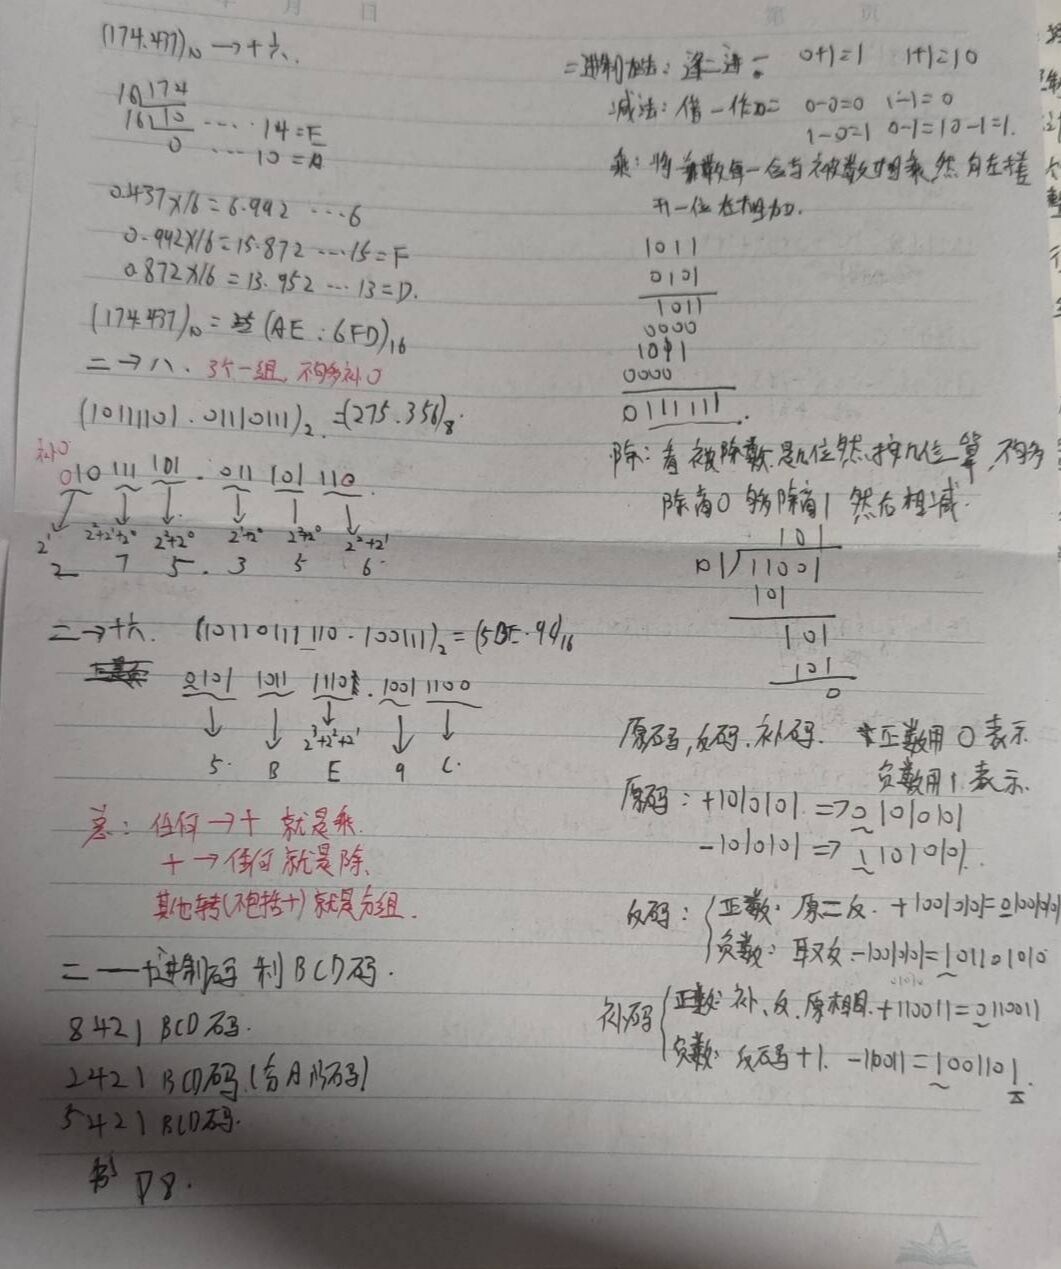 月 日
(174.437)₁₀ → 十六.
16 174
16 10 ···· 14=E
0 ··· 10=A
0.437×16=6.992 ···6
0.992×16=15.872 ···15=F
0.872×16=13.952 ···13=D.
(174.437)₁₀ = (AE.6FD)₁₆
二→八. 3个一组, 不够补0
(10111101.01110111)₂=(275.356)₈.
补0
010 111 101 . 011 101 110
2¹ 2²+2¹+2⁰ 2²+2⁰ 2¹+2⁰ 2²+2⁰ 2²+2¹
2 7 5 . 3 5 6
二→十六. (10110111110.100111)₂=(5BE.9C)₁₆
0101 1011 1110 . 1001 1100
2³+2²+2¹
5 B E 9 C.
总: 任何→十 就是乘.
十→任何 就是除.
其他转(不包括十)就是分组.
二—十进制码 利BCD码.
8421 BCD码.
2421 BCD码.(含A,B码)
5421 BCD码.
书 P8.
第 页
二进制加法: 逢二进一 0+1=1 1+1=10
减法: 借一作二 0-0=0 1-1=0
1-0=1 0-1=10-1=1.
乘: 将乘数每一位与被数相乘, 然 向左移
一位在相加.
1011
0101
1011
0000
1011
0000
0111111.
除: 看被除数是几位然,按几位算,不够
除商0 够除商1 然后相减.
101
101 11001
101
101
101
0
原码,反码.补码. 正数用0表示
负数用1表示.
原码: +1010101 => 01010101
-1010101 => 11010101.
反码: 正数: 原=反. +1001010=01001010
负数: 取反 -1001010=10110101
补码 正数: 补、反.原相同. +110011=0110011
负数: 反码+1. -110011=1001101.